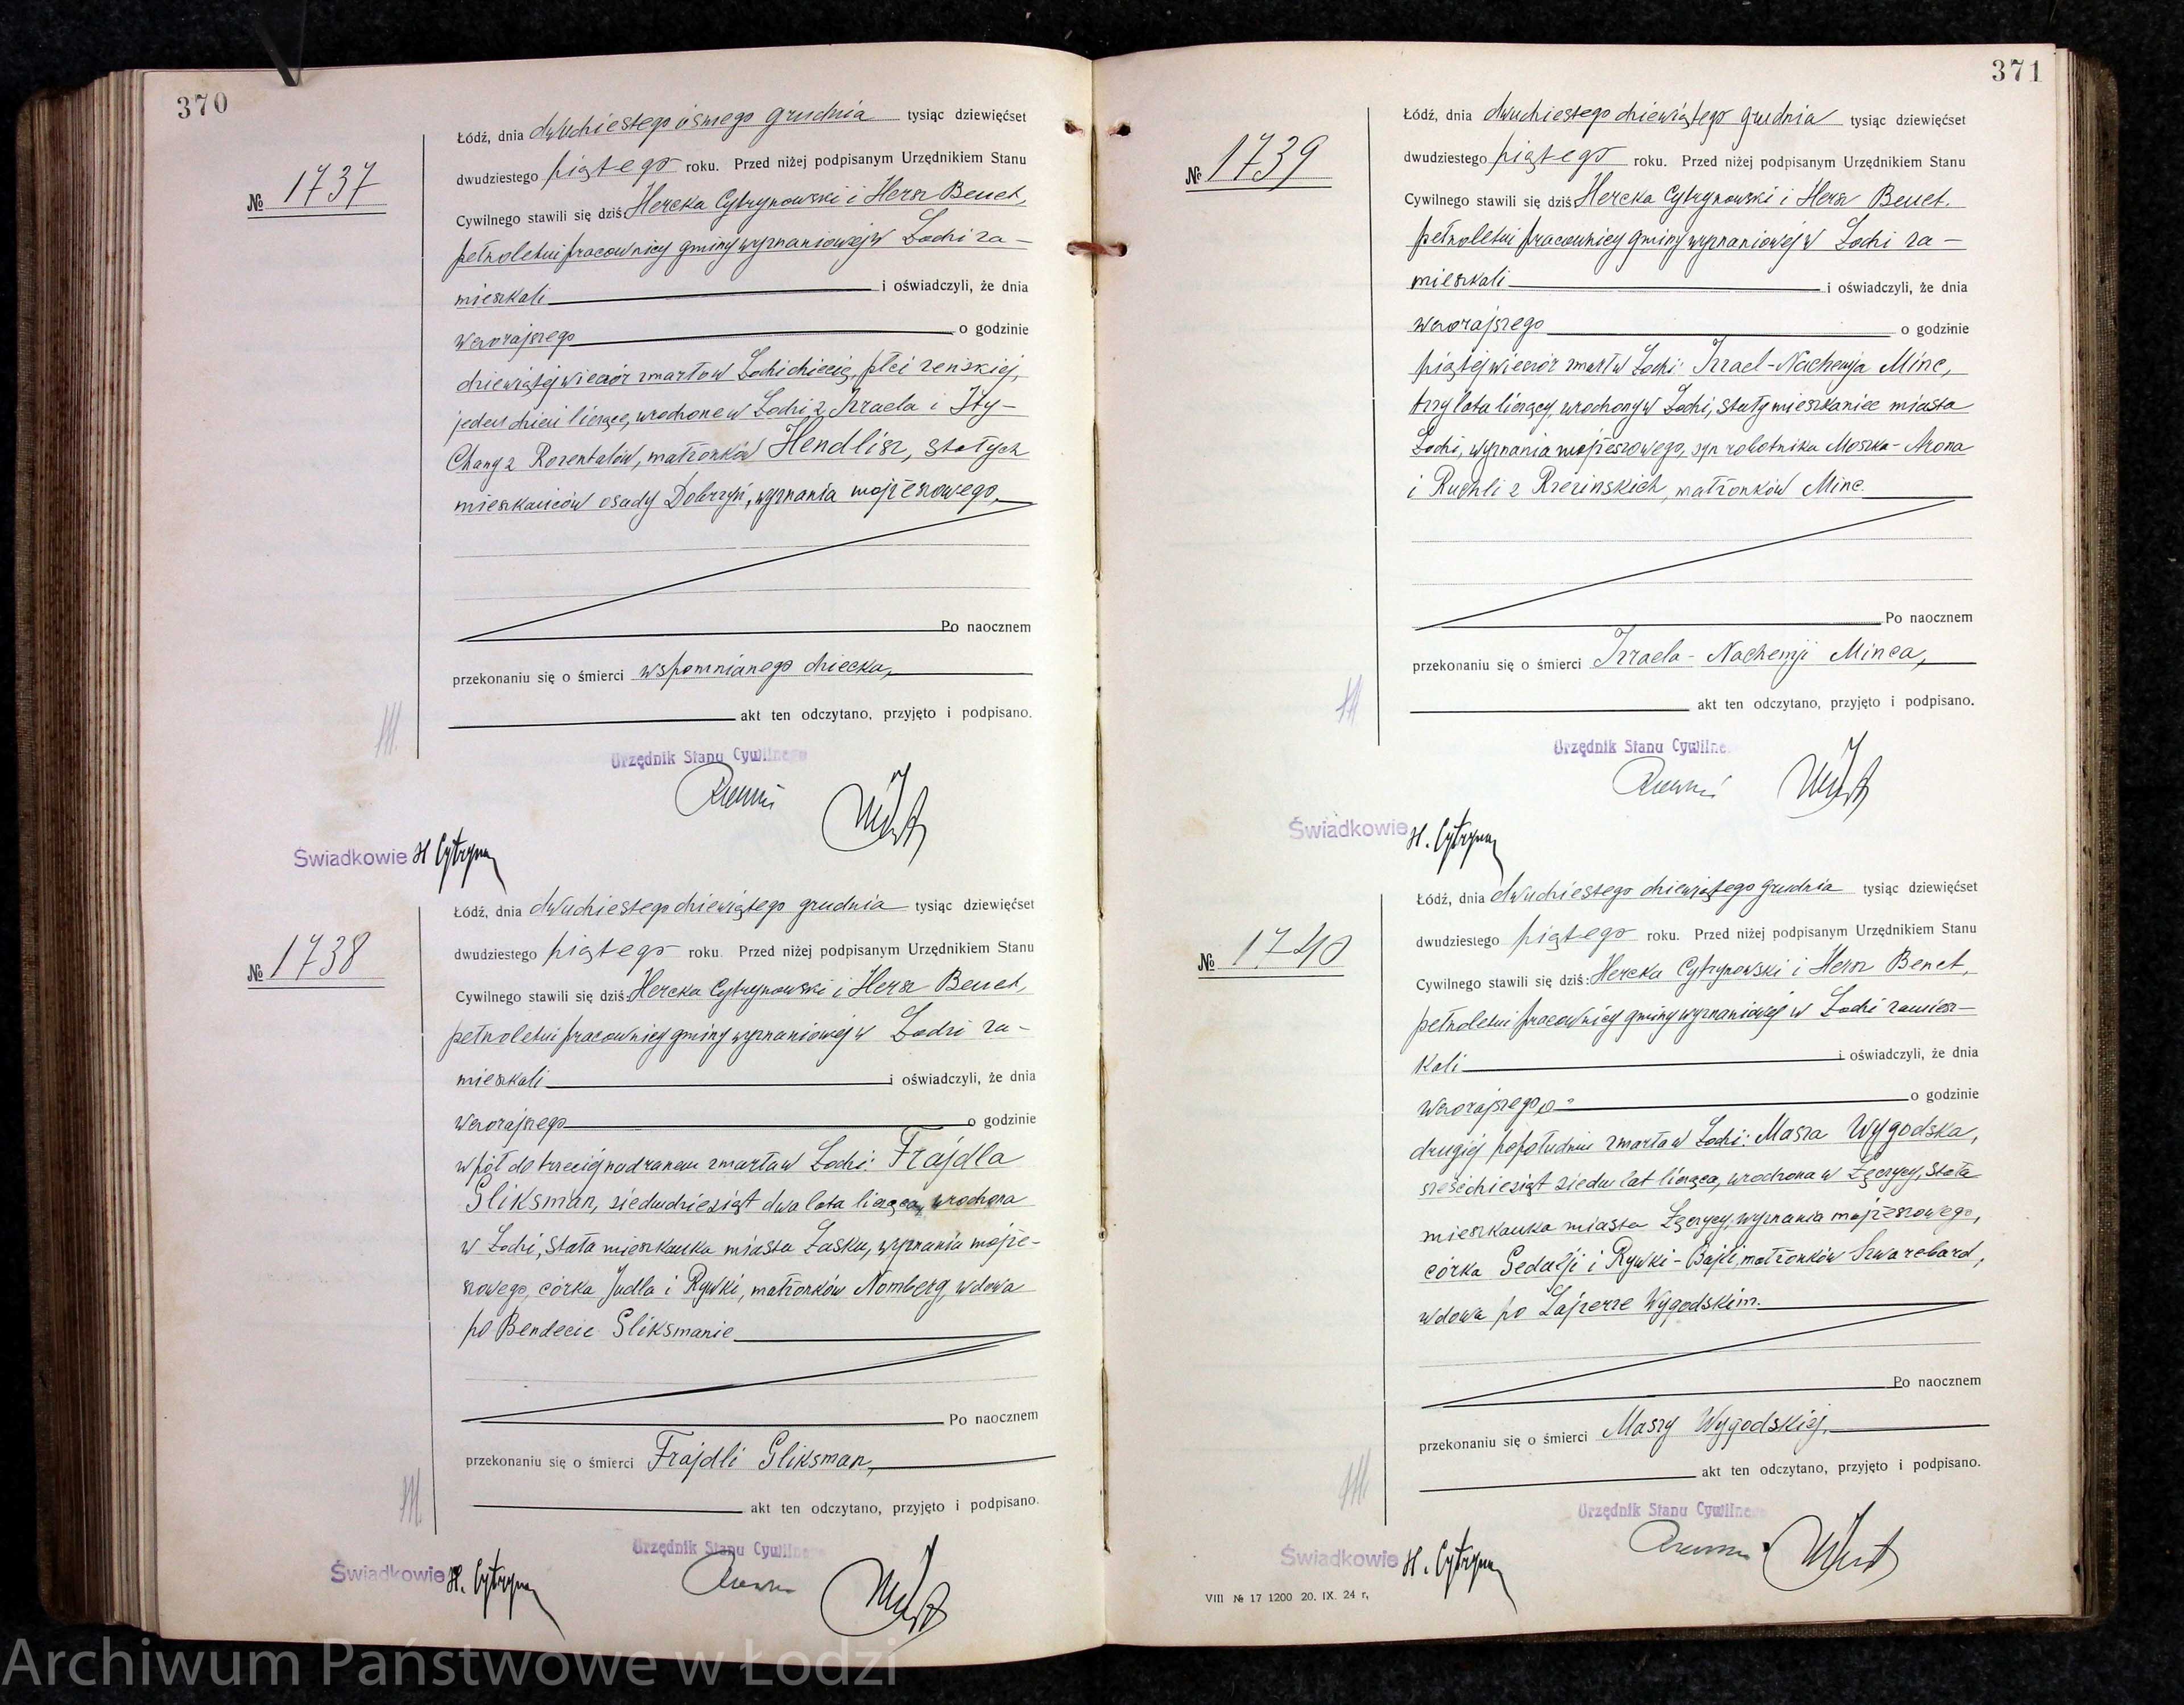 370
№ 1737
Łódź, dnia dwudziestego ósmego grudnia tysiąc dziewięćset
dwudziestego piątego roku. Przed niżej podpisanym Urzędnikiem Stanu
Cywilnego stawili się dziś: Hercka Cytrynowski i Hersz Benet,
pełnoletni pracownicy gminy wyznaniowej w Łodzi za-
mieszkali i oświadczyli, że dnia
wczorajszego o godzinie
dziewiątej wieczór zmarło w Łodzi dziecię, płci żeńskiej,
jeden dzień liczące, urodzone w Łodzi z Izraela i Ity-
Chany z Rozentalów, małżonków Hendlisz, stałych
mieszkańców osady Dobrzyń, wyznania mojżeszowego,
Po naocznem
przekonaniu się o śmierci wspomnianego dziecka,
akt ten odczytano, przyjęto i podpisano.
Urzędnik Stanu Cywilnego
Świadkowie H Cytryno
№ 1738
Łódź, dnia dwudziestego dziewiątego grudnia tysiąc dziewięćset
dwudziestego piątego roku. Przed niżej podpisanym Urzędnikiem Stanu
Cywilnego stawili się dziś: Hercka Cytrynowski i Hersz Benet,
pełnoletni pracownicy gminy wyznaniowej w Łodzi za-
mieszkali i oświadczyli, że dnia
wczorajszego o godzinie
w pół do trzeciej nad ranem zmarła w Łodzi: Frajdla
Gliksman, siedmdziesiąt dwa lata licząca, urodzona
w Łodzi, stała mieszkanka miasta Łasku, wyznania mojże-
szowego, córka Judla i Rywki, małżonków Nomberg, wdowa
po Bendecie Gliksmanie
Po naocznem
przekonaniu się o śmierci Frajdli Gliksman,
akt ten odczytano, przyjęto i podpisano.
Urzędnik Stanu Cywilnego
Świadkowie H. Cytryno
371
№ 1739
Łódź, dnia dwudziestego dziewiątego grudnia tysiąc dziewięćset
dwudziestego piątego roku. Przed niżej podpisanym Urzędnikiem Stanu
Cywilnego stawili się dziś Hercka Cytrynowski i Hersz Benet.
pełnoletni pracownicy gminy wyznaniowej w Łodzi za-
mieszkali i oświadczyli, że dnia
wczorajszego o godzinie
piątej wieczór zmarł w Łodzi: Izrael-Nachemja Minc,
trzy lata liczący, urodzony w Łodzi, stały mieszkaniec miasta
Łodzi, wyznania mojżeszowego, syn robotnika Moszka-Arona
i Ruchli z Brzezinskich, małżonków Minc.
Po naocznem
przekonaniu się o śmierci Izraela-Nachemji Minca,
akt ten odczytano, przyjęto i podpisano.
Urzędnik Stanu Cywilne
Świadkowie H. Cytryno
№ 1740
Łódź, dnia dwudziestego dziewiątego grudnia tysiąc dziewięćset
dwudziestego piątego roku. Przed niżej podpisanym Urzędnikiem Stanu
Cywilnego stawili się dziś: Hercka Cytrynowski i Hersz Benet,
pełnoletni pracownicy gminy wyznaniowej w Łodzi zamiesz-
kali i oświadczyli, że dnia
wczorajszego o godzinie
drugiej popołudniu zmarła w Łodzi: Masza Wygodska,
sześćdziesiąt siedm lat licząca, urodzona w Łęczycy, stała
mieszkanka miasta Łęczycy, wyznania mojżeszowego,
córka Gedalji i Rywki-Bajli, małżonków Szwarcbard,
wdowa po Lajzerze Wygodskim.
Po naocznem
przekonaniu się o śmierci Maszy Wygodskiej,
akt ten odczytano, przyjęto i podpisano.
Urzędnik Stanu Cywilne
Świadkowie H. Cytryno
VIII № 17 1200 20. IX. 24 r.
Archiwum Państwowe w Łodzi